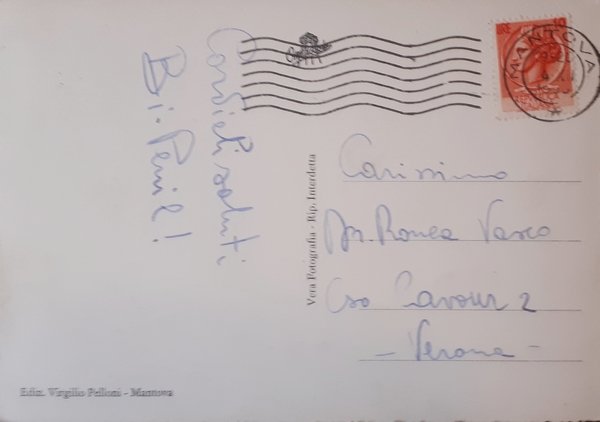 Cordiali saluti
Vera Fotografia - Rip. Interdetta
Carissimo
Vasco
Cso Cavour 2
- Verona -
Ediz. Virgilio Pelloni - Mantova
MANTOVA